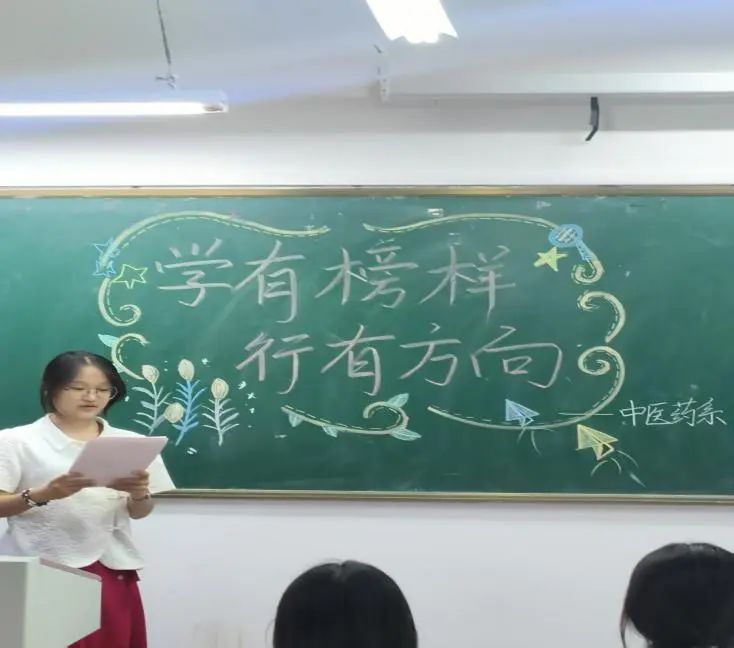 学有榜样
行有方向
——中医药系